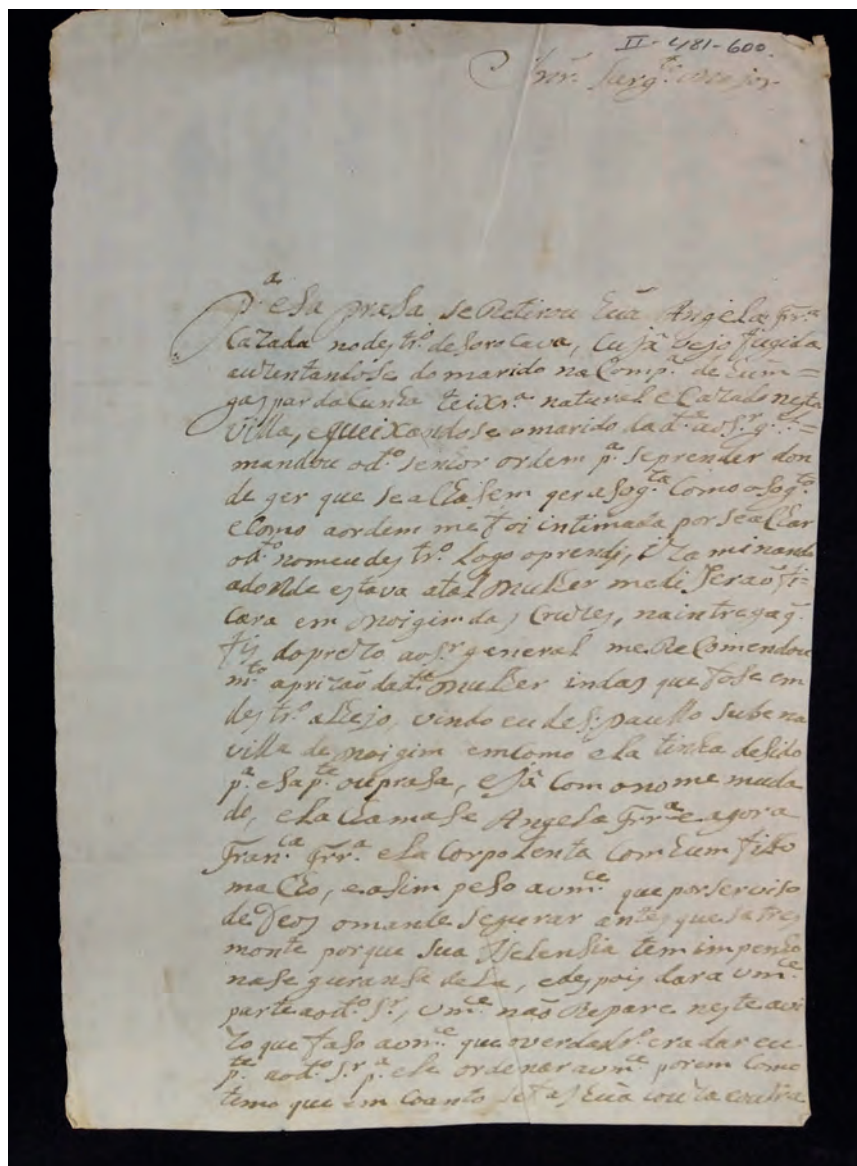 II-481-600
Snr. Sarg.to Major
P.a esa prasa se Retirou huã Angela Frr.a
Cazada no destr.o de Soro Cava, cujã vejo fugida
auzentandose do marido na Comp.a de hum =
gaspar da Cunha teixr.a natural e Cazado nesta
villa, e queixandose o marido da d.a ao S.r g.al =
mandou o d.o senhor ordem p.a se prender don
de qer que se achasem qer a sog.ta Como o Sog.to
e Como a ordem me foi intimada por se achar
o d.o no meu destr.o Logo o prendj, iza minando
adonde estava a tal mulher me diserão fi=
cara em moigim das Cruzes, na intrega q.
fis do prezo ao S.r general me Re Comendou
m.to a prizão da d.a mulher indas que fose em
destr.o alhejo, vindo eu de S. paullo sube na
villa de moigim em como ela tinha desido
p.a esa p.te ou prasa, e jâ com o nome muda
do, ela chamase Angela Frr.a e agora
Fran.ca Frr.a ela Corpolenta Com hum filho
macho, e asim peso a vm.ce que por serviso
de Deos o mande segurar antes que se tres
monte porque Sua Iselensia tem impenho
na se guransa dela, e despois dara vm.ce
parte ao d.o S.r, vm.ce não Repare neste avi
zo que faso a vm.ce que o verdadr.o era dar eu
p.te ao d.o S.r p.a ele ordenar a vm.ce porem Como
temo que em Coanto se fas huã couza e outra